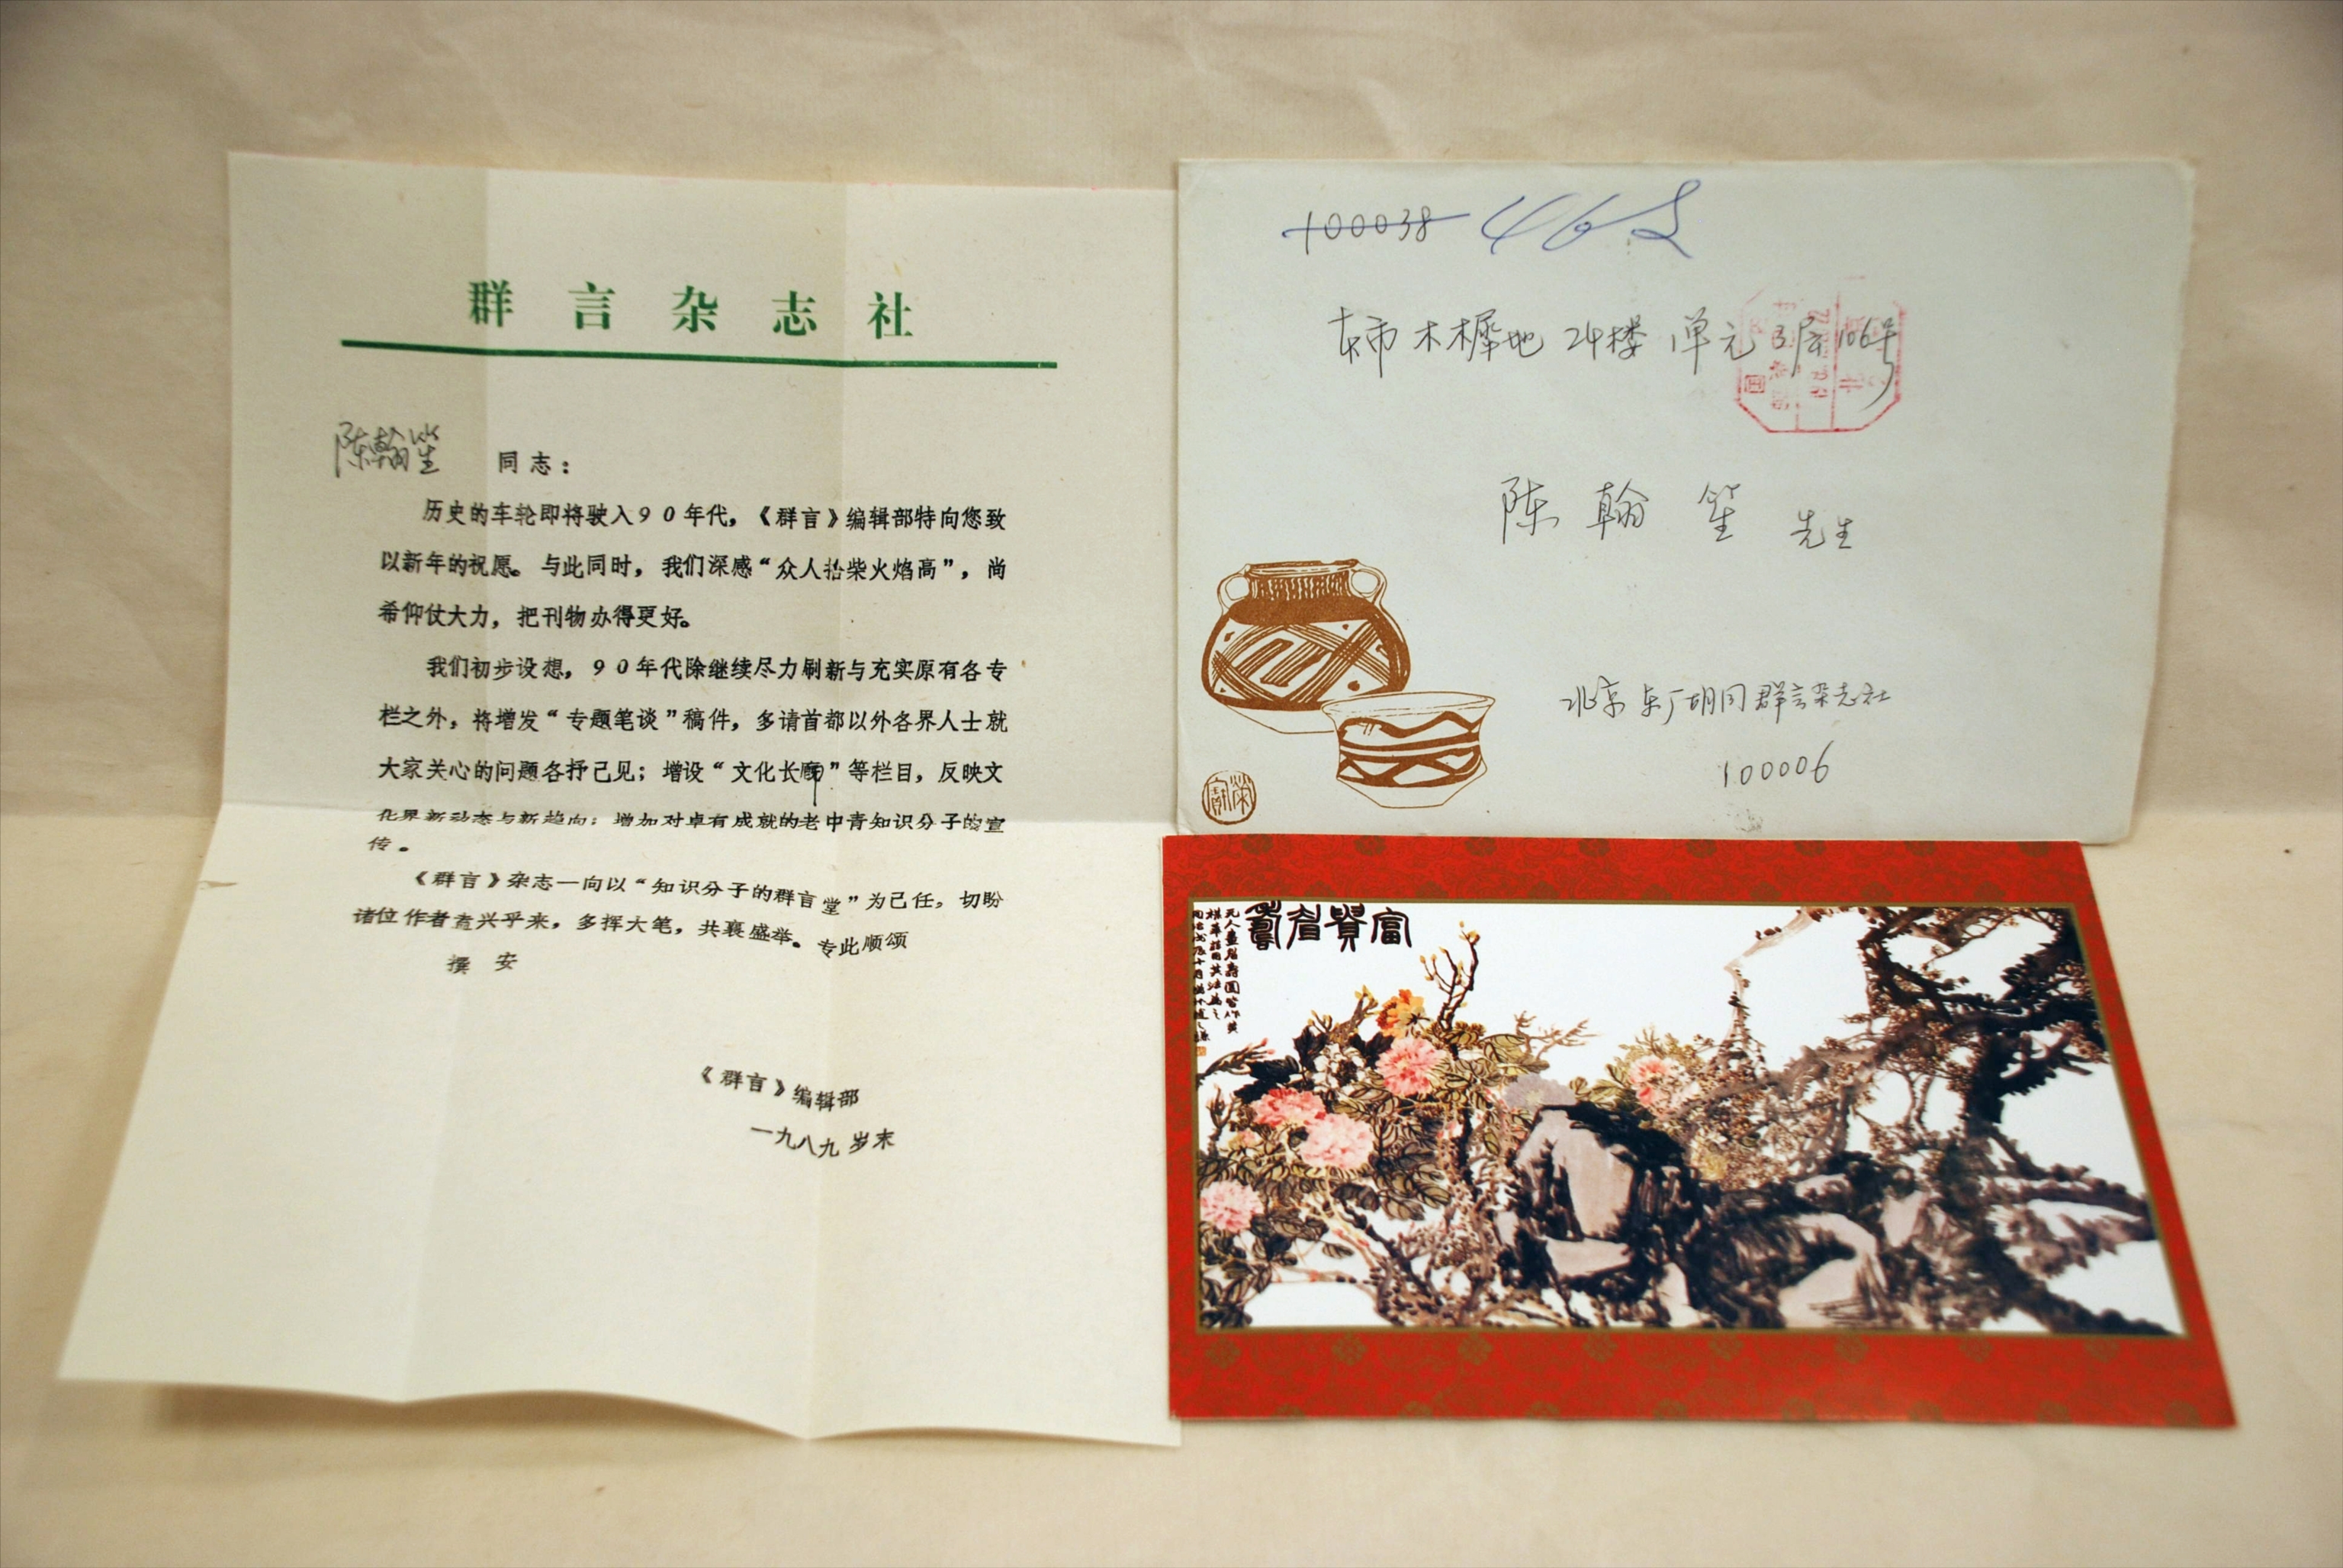 群言杂志社
陈翰笙 同志：
历史的车轮即将驶入90年代，《群言》编辑部特向您致
以新年的祝愿。与此同时，我们深感“众人拾柴火焰高”，尚
希仰仗大力，把刊物办得更好。
我们初步设想，90年代除继续尽力刷新与充实原有各专
栏之外，将增发“专题笔谈”稿件，多请首都以外各界人士就
大家关心的问题各抒己见；增设“文化长廊”等栏目，反映文
化界新动态与新趋向；增加对卓有成就的老中青知识分子的宣
传。
《群言》杂志一向以“知识分子的群言堂”为己任，切盼
诸位作者乘兴乎来，多挥大笔，共襄盛举。专此顺颂
撰 安
《群言》编辑部
一九八九岁末
100038
本市木樨地24楼 单元3层106号
陈翰笙 先生
北京东厂胡同群言杂志社
100006
富貴眉壽